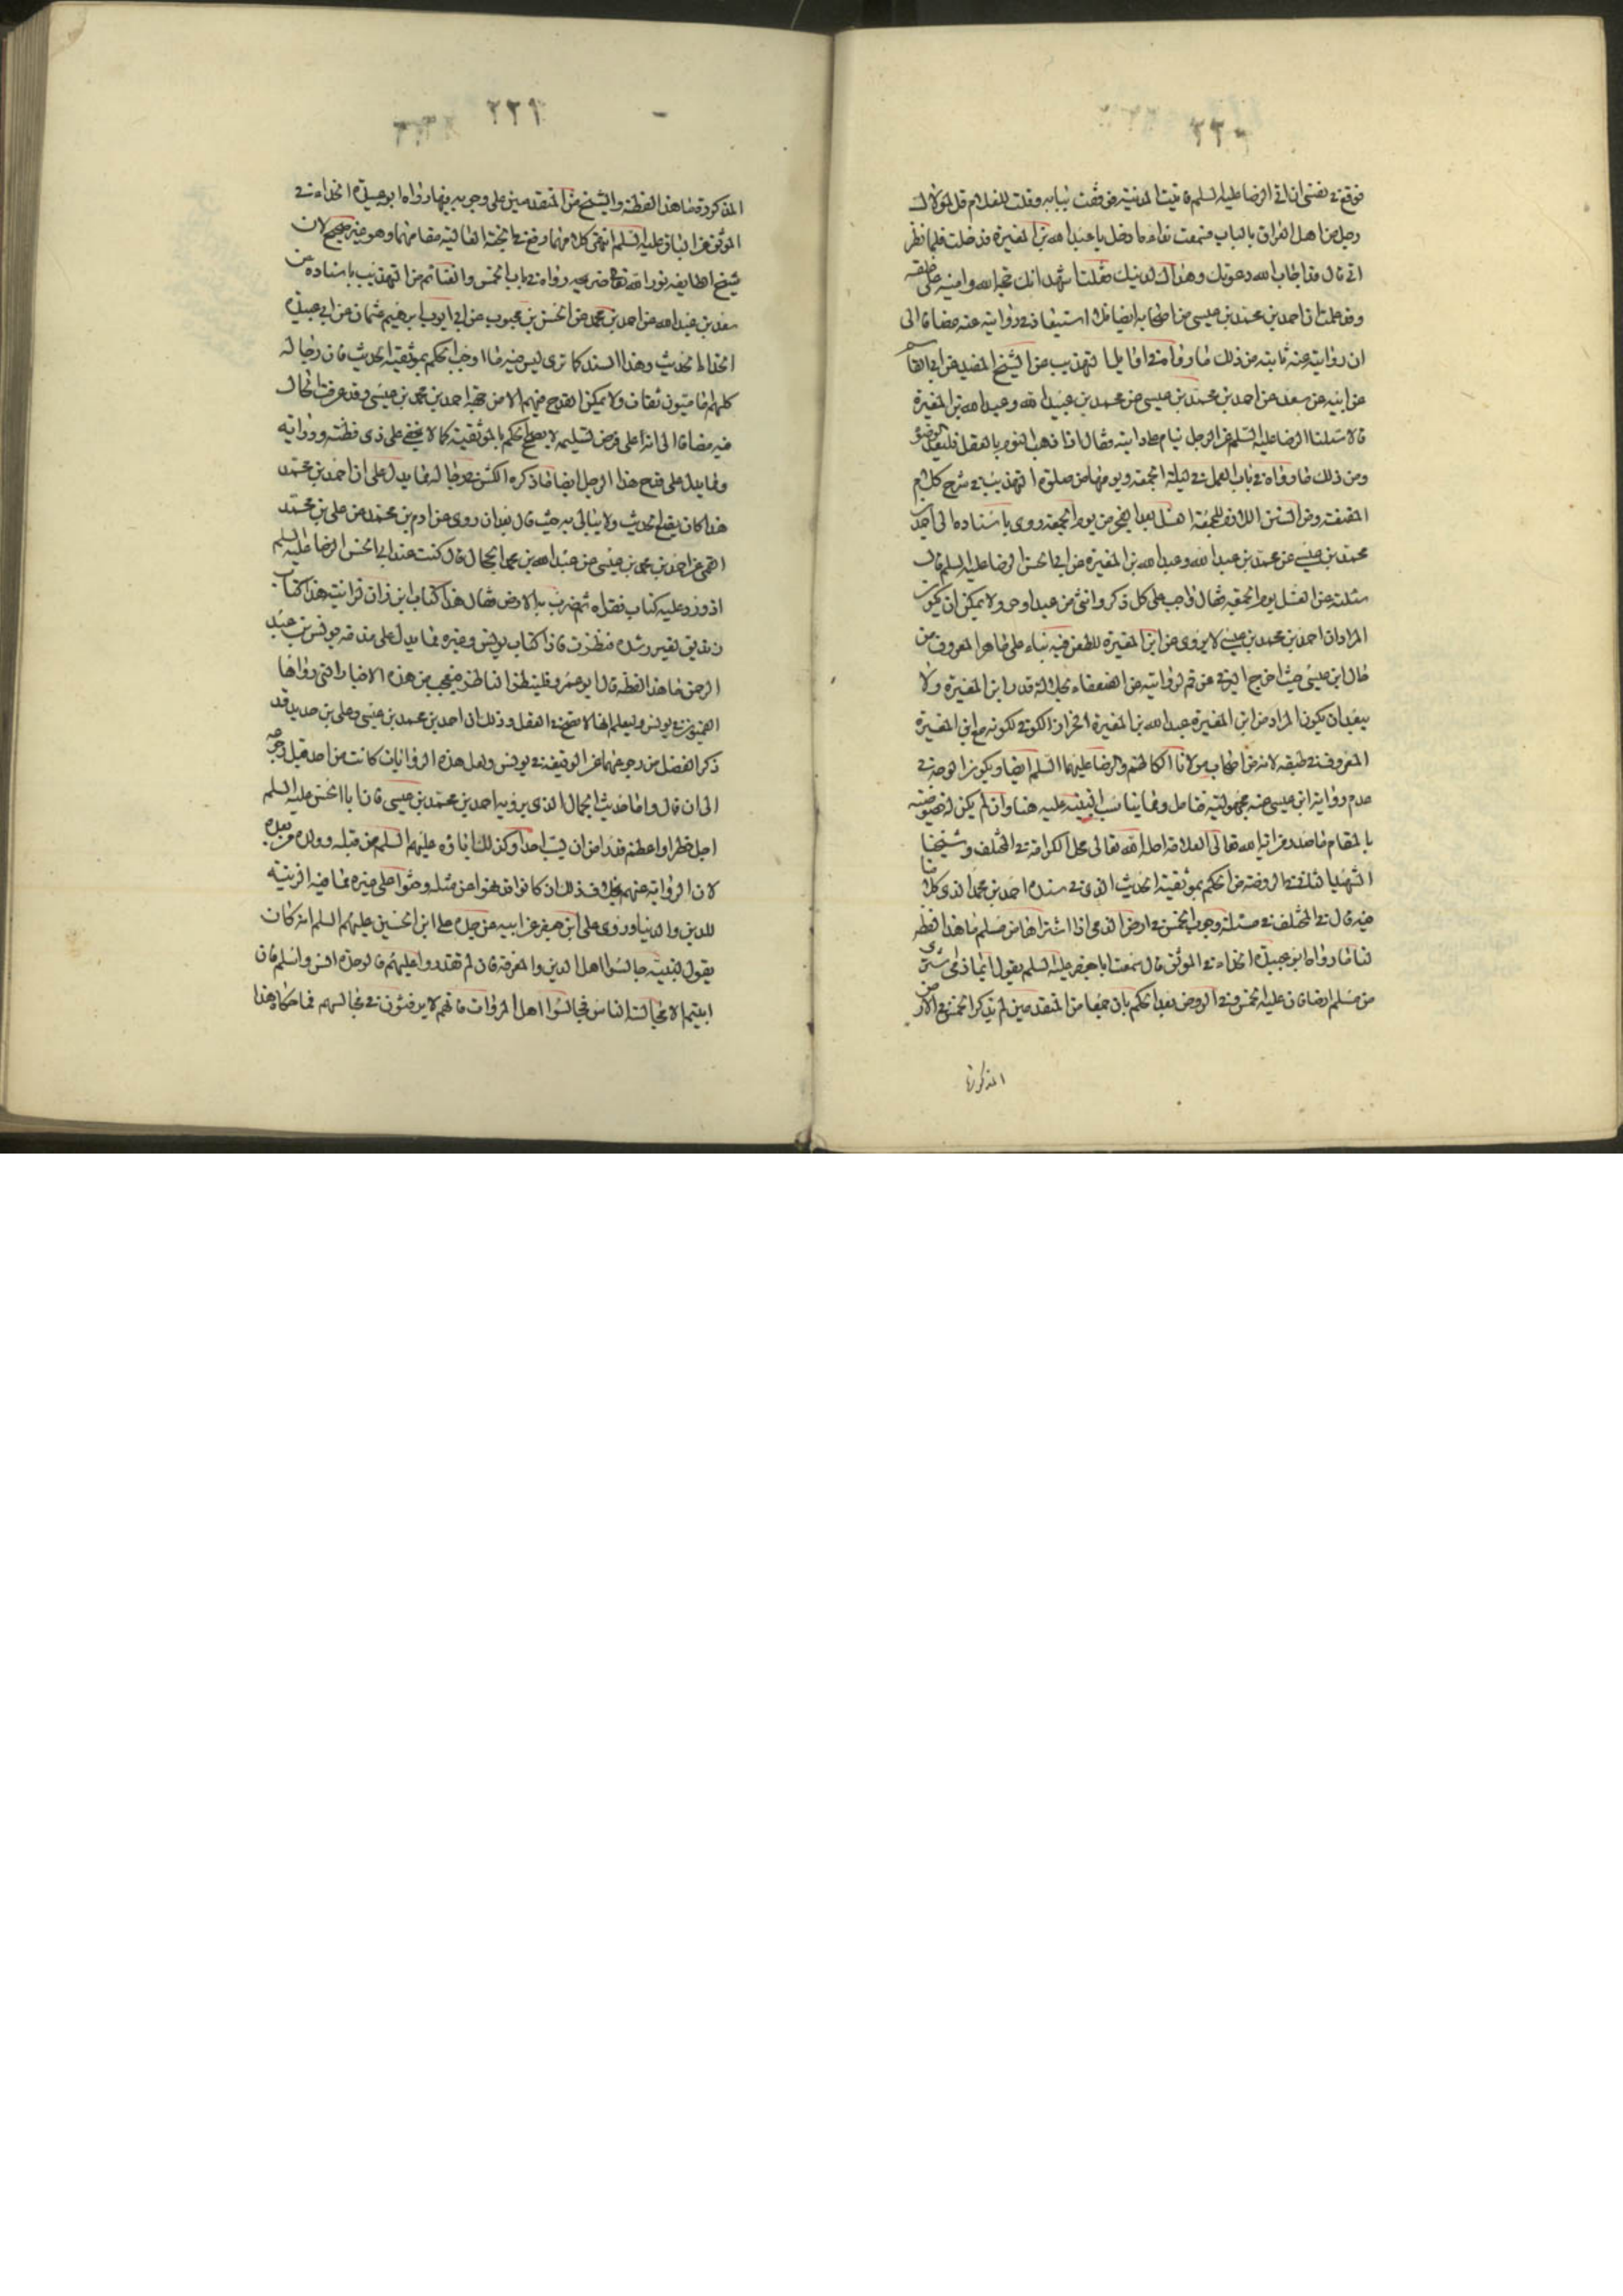 ٢٣٠
فوقع في نفسي ان اتي الرضا عليه السلم فاتيت المدينة فوقفت ببابه وقلت للغلام قل لمولاك
رجل من اهل العراق بالباب فسمعت نداءه ادخل يا عبد الله بن المغيرة فدخلت فلما نظر
الي قال قد اجاب الله دعوتك وهداك لدينك فقلت اشهد انك حجة الله وامينه على خلقه
وقد علمت ان احمد بن محمد بن عيسى من اصحابه ايضا فلا استبعاد في روايته عنه مضافا الى
ان روايته عنه ثابتة من ذلك ما رواه في اوايل التهذيب عن الشيخ المفيد عن ابي القاسم
عن ابيه عن سعد عن احمد بن محمد بن عيسى عن محمد بن عبيد الله وعبد الله بن المغيرة
قالا سئلنا الرضا عليه السلم عن الرجل ينام على دابته فقال اذا ذهب النوم بالعقل فليعد الوضوء
ومن ذلك ما رواه في باب العمل في ليلة الجمعة ويومها من صلوة التهذيب في شرح كلام
المقنعة ومن السنن اللازمة للجمعة الغسل بعد الفجر من يوم الجمعة روى باسناده الى احمد بن
محمد بن عيسى عن محمد بن عبد الله وعبد الله بن المغيرة عن ابي الحسن الرضا عليه السلم قال
سئلته عن الغسل يوم الجمعة فقال واجب على كل ذكر وانثى من عبد او حر ولا يمكن ان يكون
المراد ان احمد بن محمد بن عيسى لا يروي عن ابن المغيرة للطعن فيه بناء على ما هو المعروف من
حال ابن عيسى حيث اخرج البرقي عن قم لروايته عن الضعفاء لجلالة قدر ابن المغيرة ولا
يبعد ان يكون المراد من ابن المغيرة عبد الله بن المغيرة الخزاز الكوفي لكونه مع ابن المغيرة
المعروف في طبقة لانه من اصحاب مولانا الكاظم والرضا عليهما السلم ايضا ويكون الوجه في
عدم رواية ابن عيسى عنه مجهوليته فتامل ومما يناسب التنبيه عليه هنا وان لم يكن له خصوصية
بالمقام ما صدر من اية الله تعالى العلامة احله الله تعالى محل الكرامة في المختلف وشيخنا
الشهيد الثاني في الروضة من الحكم بموثقية الحديث الذي في سنده احمد بن محمد الذي كلامنا
فيه قال في المختلف في مسئلة وجوب الخمس في ارض الذمي اذا اشتراها من مسلم ما هذا لفظه
لنا ما رواه ابو عبيدة الحذاء في الموثق قال سمعت ابا جعفر عليه السلم يقول ايما ذمي اشترى
من مسلم ارضا فان عليه الخمس وفي الروض بعد الحكم بان جمعا من المتقدمين لم يذكر الخمس في الارض
المذكورة
٢٣١
المذكورة ما هذا لفظه والشيخ من المتقدمين على وجوبه فيها رواه ابو عبيدة الحذاء في
الموثق عن الباقر عليه السلم انتهى كلامهما رفع في الجنة العالية مقامهما وهو غير صحيح لان
شيخ الطايفة نور الله تعالى ضريحه رواه في باب الخمس والغنائم من التهذيب باسناده عن
سعد بن عبد الله عن احمد بن محمد عن الحسن بن محبوب عن ابي ايوب ابرهيم بن عثمان عن ابي عبيدة
الحذاء الحديث وهذا السند كما ترى ليس فيه ما اوجب الحكم بموثقية الحديث فان رجاله
كلهم اماميون ثقات ولا يمكن القدح فيهم الا من جهة احمد بن محمد بن عيسى وقد عرفت الحال
فيه مضافا الى انه على فرض تسليمه لا يصلح الحكم بالموثقية كما لا يخفى على ذي فطنة ودراية
ومما يدل على قدح هذا الرجل ايضا ما ذكره الكشي في رجاله مما يدل على ان احمد بن محمد
هذا كان يضع الحديث ولا يبالي به حيث قال بعد ان روى عن ادم بن محمد عن علي بن محمد
القمي عن احمد بن محمد بن عيسى عن عبد الله بن محمد الحجال قال كنت عند ابي الحسن الرضا عليه السلم
اذ ورد عليه كتاب فقراه ثم ضرب به الارض فقال هذا كتاب ابن زان لزانية هذا كتاب
زنديق لغير رشده فنظرت فاذا كتاب يونس وغيره مما يدل على مذمة يونس بن عبد
الرحمن ما هذا لفظه قال ابو عمرو فلينظر الناظر فيتعجب من هذه الاخبار التي رواها
القميون في يونس وليعلم انها لا تصح في العقل وذلك ان احمد بن محمد بن عيسى وعلي بن حديد قد
ذكر الفضل من رجوعهما عن الوقيعة في يونس ولعل هذه الروايات كانت من احمد قبل رجوعه
الى ان قال واما حديث الجمال الذي يرويه احمد بن محمد بن عيسى فان ابا الحسن عليه السلم
اجل خطرا واعظم قدرا من ان يسب احدا وكذلك اباؤه عليهم السلم من قبله وولده من بعده
لان الرواية عنهم بخلاف ذلك اذ كانوا قد نهوا عن مثله وحثوا على غيره مما فيه الزينة
للدين والدنيا وروى علي ابن جعفر عن ابيه عن جده علي ابن الحسين عليهم السلم انه كان
يقول لبنيه جالسوا اهل الدين والمعرفة فان لم تقدروا عليهم فالوحدة انس واسلم فان
ابيتم الا مجالسة الناس فجالسوا اهل المروات فانهم لا يرفثون في مجالسهم فما حكاه هذا